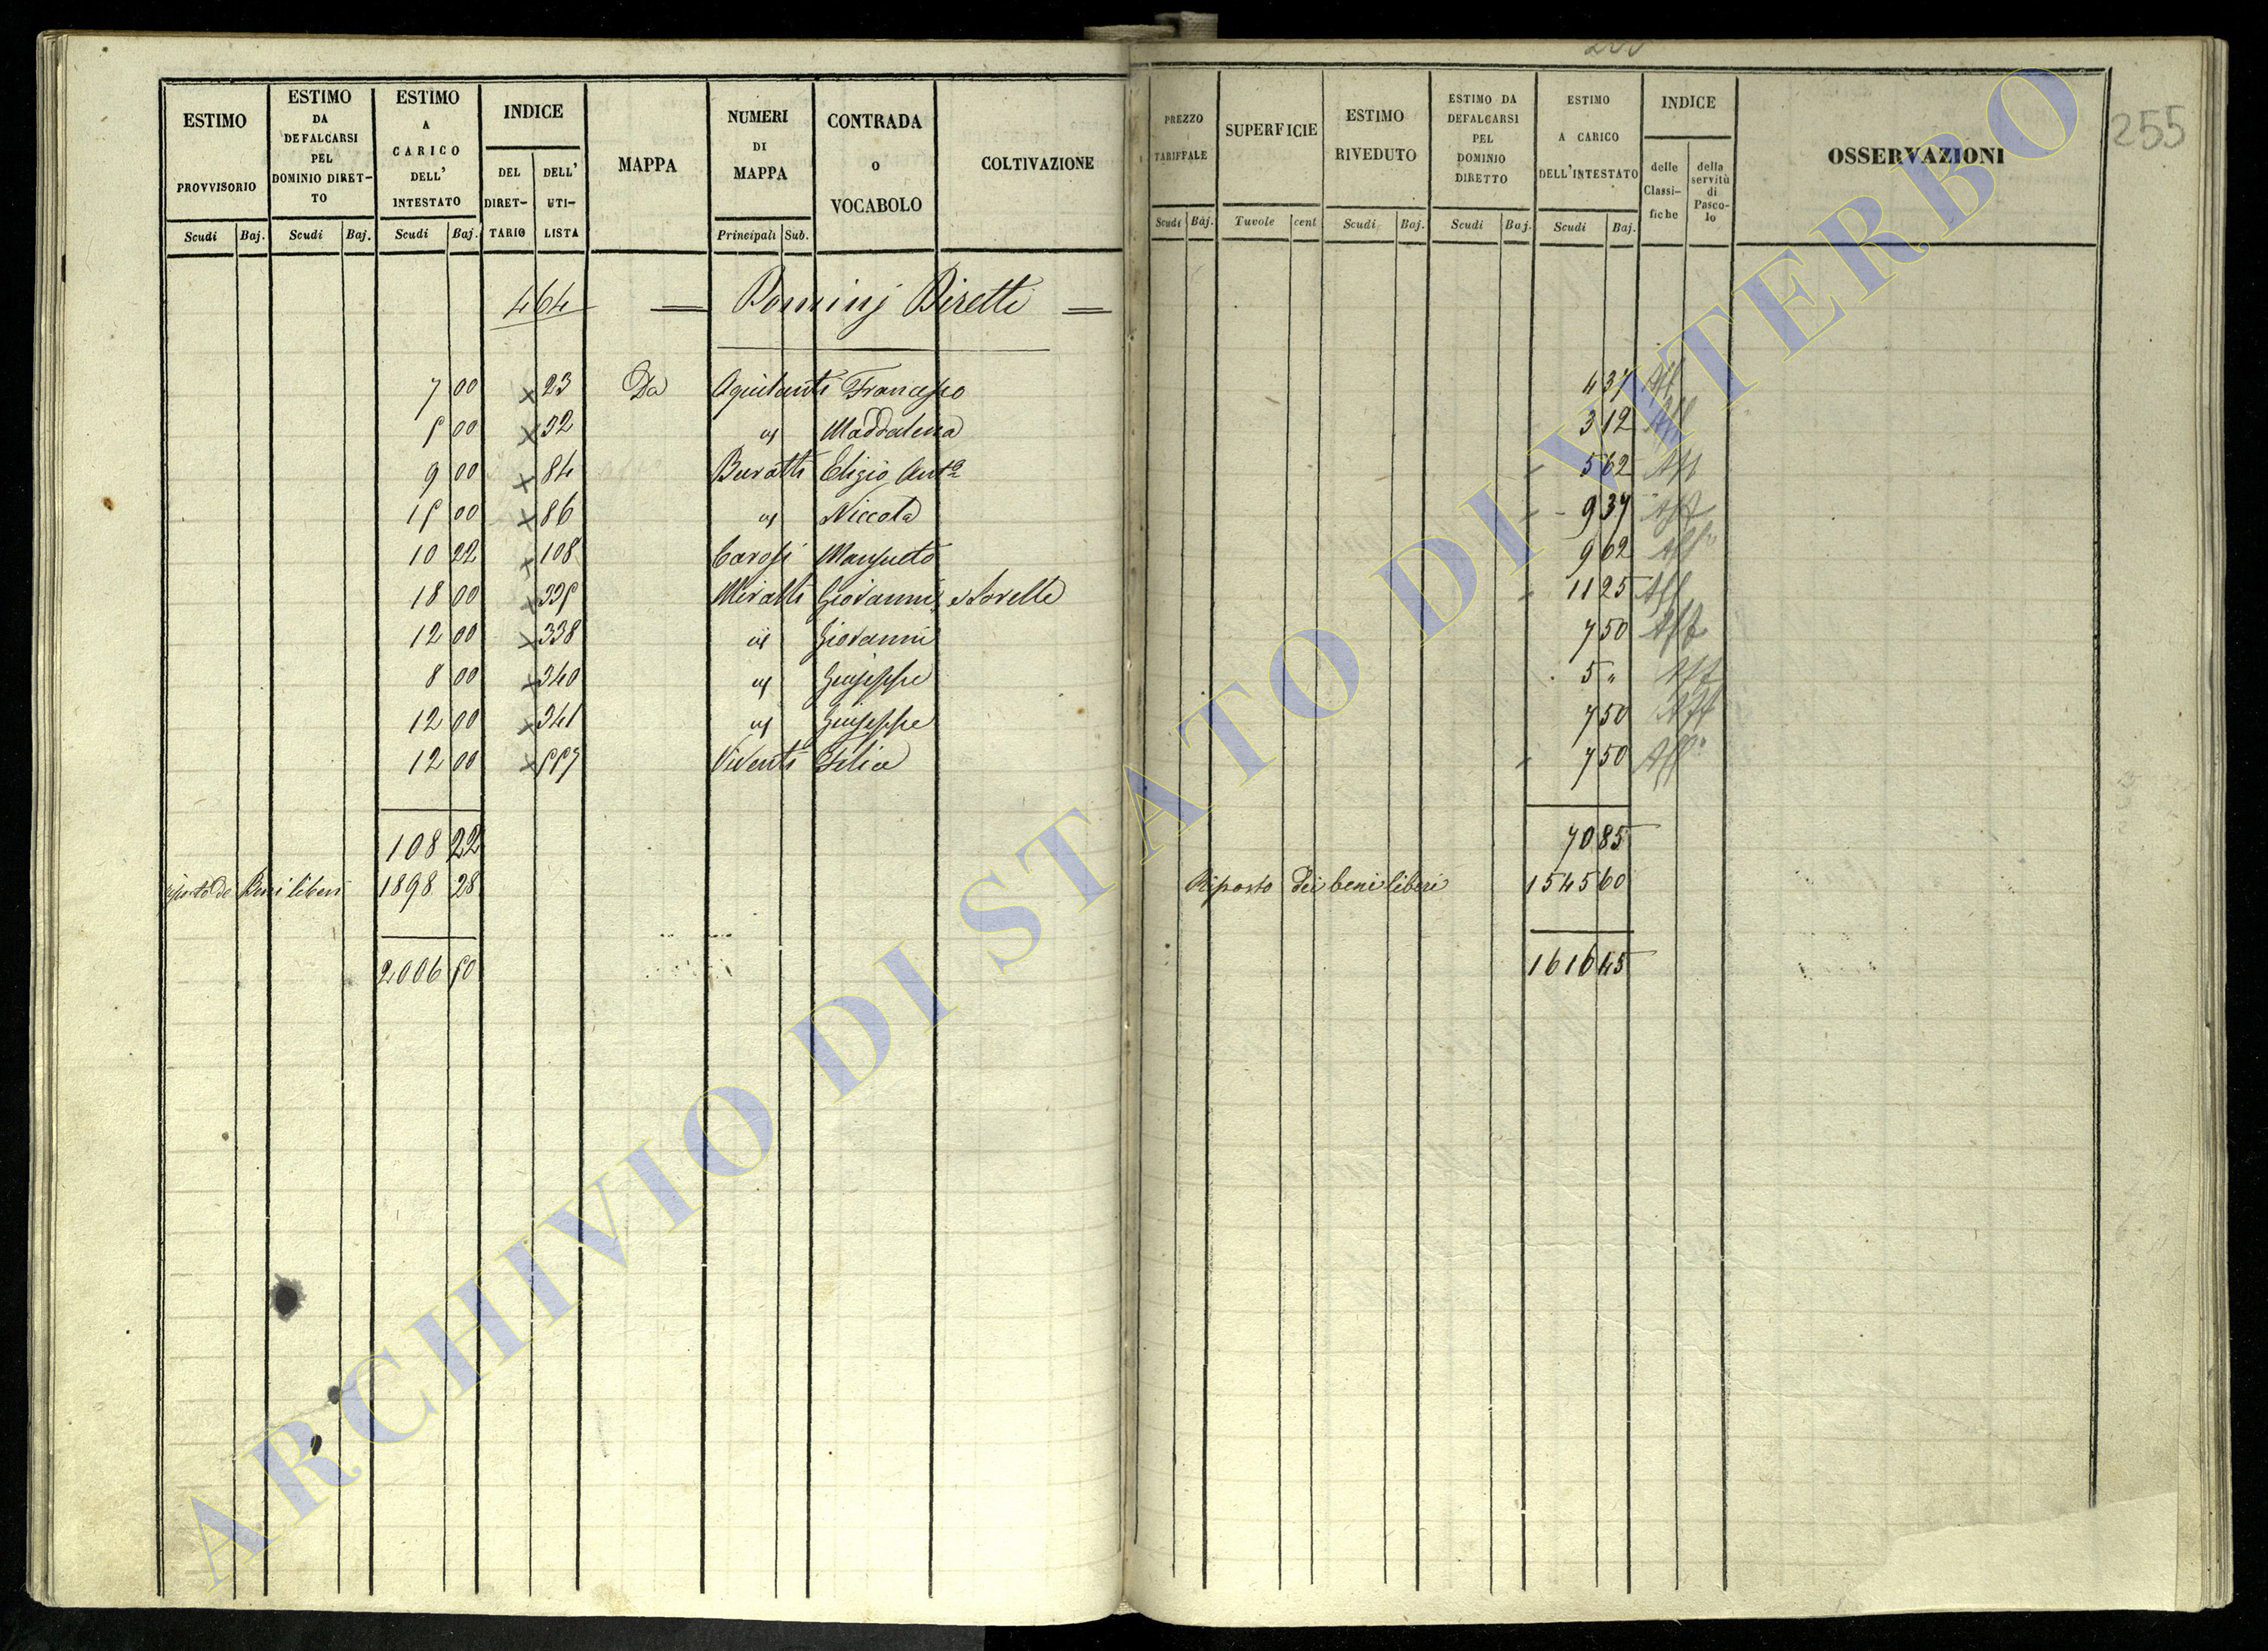 255
ESTIMO PROVVISORIO | ESTIMO DA DEFALCARSI PEL DOMINIO DIRETTO | ESTIMO A CARICO DELL' INTESTATO | INDICE DEL DIRETTARIO | DELL' UTILISTA | MAPPA | NUMERI DI MAPPA | CONTRADA o VOCABOLO | COLTIVAZIONE | PREZZO TARIFFALE | SUPERFICIE | ESTIMO RIVEDUTO | ESTIMO DA DEFALCARSI PEL DOMINIO DIRETTO | ESTIMO A CARICO DELL'INTESTATO | INDICE delle Classifiche | della servitù di Pascolo | OSSERVAZIONI
Scudi Baj. | Scudi Baj. | Scudi Baj. | Principali Sub. | Scudi Baj. | Tavole cent | Scudi Baj. | Scudi Baj. | Scudi Baj.
464 = Dominj Diretti =
7 00 × 23 Da Aquilanti Francesco 4 37 Aff
5 00 × 32 " Maddalena 3 12 Aff
9 00 × 84 Buratti Eligio Antº 5 62 Aff
15 00 × 86 " Niccola 9 37 Aff
10 22 × 108 Carosi Mansueto 9 62 Aff
18 00 × 335 Miratti Giovanni, e Sorelle 11 25 Aff
12 00 × 338 " Giovanni 7 50 Aff
8 00 × 340 " Giuseppe 5 " Aff
12 00 × 341 " Giuseppe 7 50 Aff
12 00 × 557 Viventi Felice 7 50 Aff
108 22 70 85
Riporto de Beni liberi 1898 28 Riporto dei beni liberi 1545 60
2006 50 1616 45
ARCHIVIO DI STATO DI VITERBO